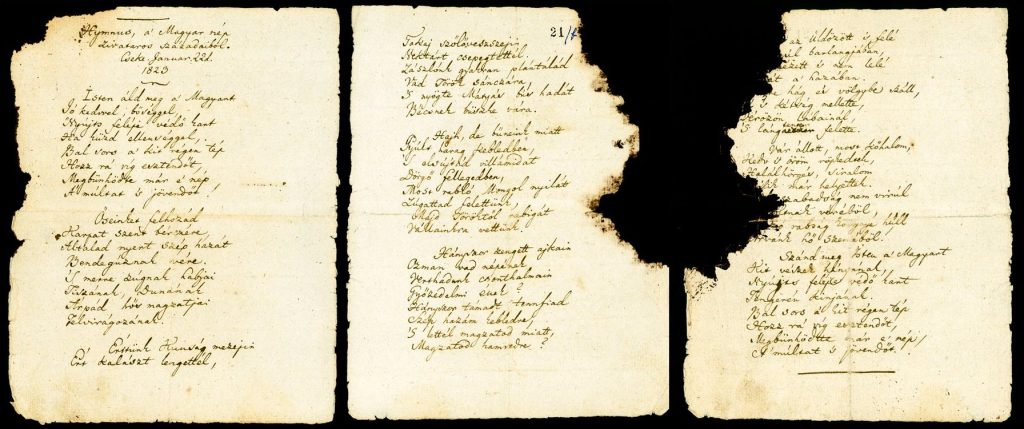 Hymnus, a' Magyar nép
zivataros századaiból.
Cseke Januar. 22d.
1823
Isten áld meg a' Magyart
Jó kedvvel, bőséggel,
Nyújts feléje védő kart
Ha küzd ellenséggel;
Bal sors a' kit régen tép
Hozz rá víg esztendőt,
Megbűnhödte már e' nép
A' múltat 's jövendőt.
Őseinket felhozád
Kárpát szent bérczére,
Általad nyert szép hazát
Bendegúznak vére.
'S merre zúgnak habjai
Tiszának, Dunának
Árpád hős magzatjai
Felvirágozának.
Értünk Kunság mezején
Ért kalászt lengettél,
21/
Tokaj szőlővesszején
Nektárt csepegtettél.
Zászlónk gyakran plántálád
Vad Török sánczára,
'S nyögte Mátyás bús hadát
Bécsnek büszke vára.
Hajh, de bűneink miatt
Gyúlt harag kebledben,
'S elsújtád villámidat
Dörgő fellegedben,
Most rabló Mongol nyilát
Zúgattad felettünk,
Majd Töröktől rabigát
Vállainkra vettünk.
Hányszor zengett ajkain
Ozman vad népének
Vert hadunk csonthalmain
Győzedelmi ének?
Hányszor támadt tennfiad
Szép hazám kebledre,
'S lettél magzatod miatt
Magzatod hamvedre?
az üldözött 's felé
barlangjában,
's nem lelé
a' hazában.
hág és völgybe száll,
's kétség mellette,
Vérözön lábainál,
'S lángtenger felette.
Vár állott, most kőhalom,
Kedv 's öröm röpkedtek,
Halálhörgés, siralom
már helyettek.
szabadság nem virúl
véréből,
rabság könnye hull
hő szeméből.
Szánd meg Isten a' Magyart
Kit vészek hányának,
Nyújts feléje védő kart
Tengerén kínjának.
Bal sors a' kit régen tép
Hozz rá víg esztendőt,
Megbűnhödte már e' nép
A' múltat 's jövendőt.